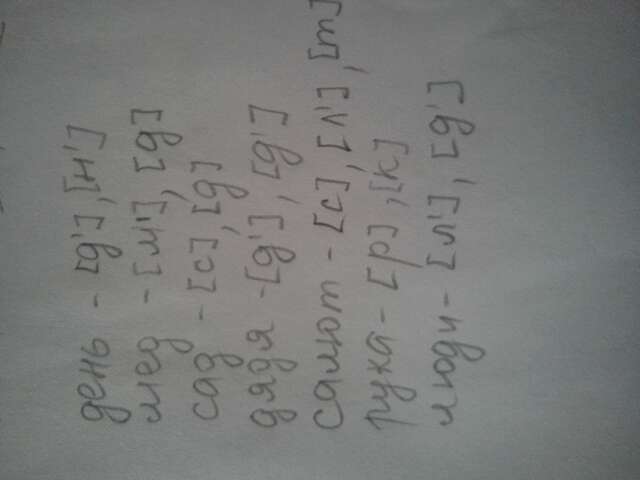 день - [д'], [н']
мед - [м'], [д]
сад - [с], [д]
дядя - [д'], [д']
салют - [с], [л'], [т]
рука - [р], [к]
люди - [л'], [д']